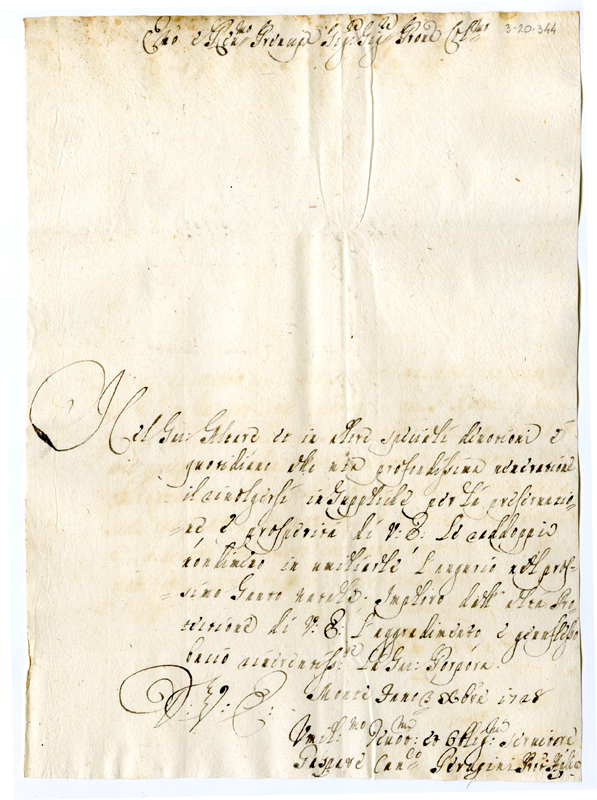 Emo e Rmo Prencipe Sig:re Sig:re Prone Colmo 3-20-344
Nel Gen: Celeare et in altre speciali divotioni è
quotidiano alla mia profondissima veneratione
il rivolgersi in Suppliche per la preservazio=
=ne e prosperità di V: E: Le raddoppio
nondimeno in umiliarle l'augurio nel pros=
=simo Santo Natale. Imploro dall' alta Pro=
tettione di V: E: l'aggradimento e genuflesso
bacio riverentiss:te la Sac: Porpora.
D: V: E: Monte Santo 3 Xbre 1728
Umil:mo Devot:mo et Oblig:mo servitore
Gaspare Can:co Perugini